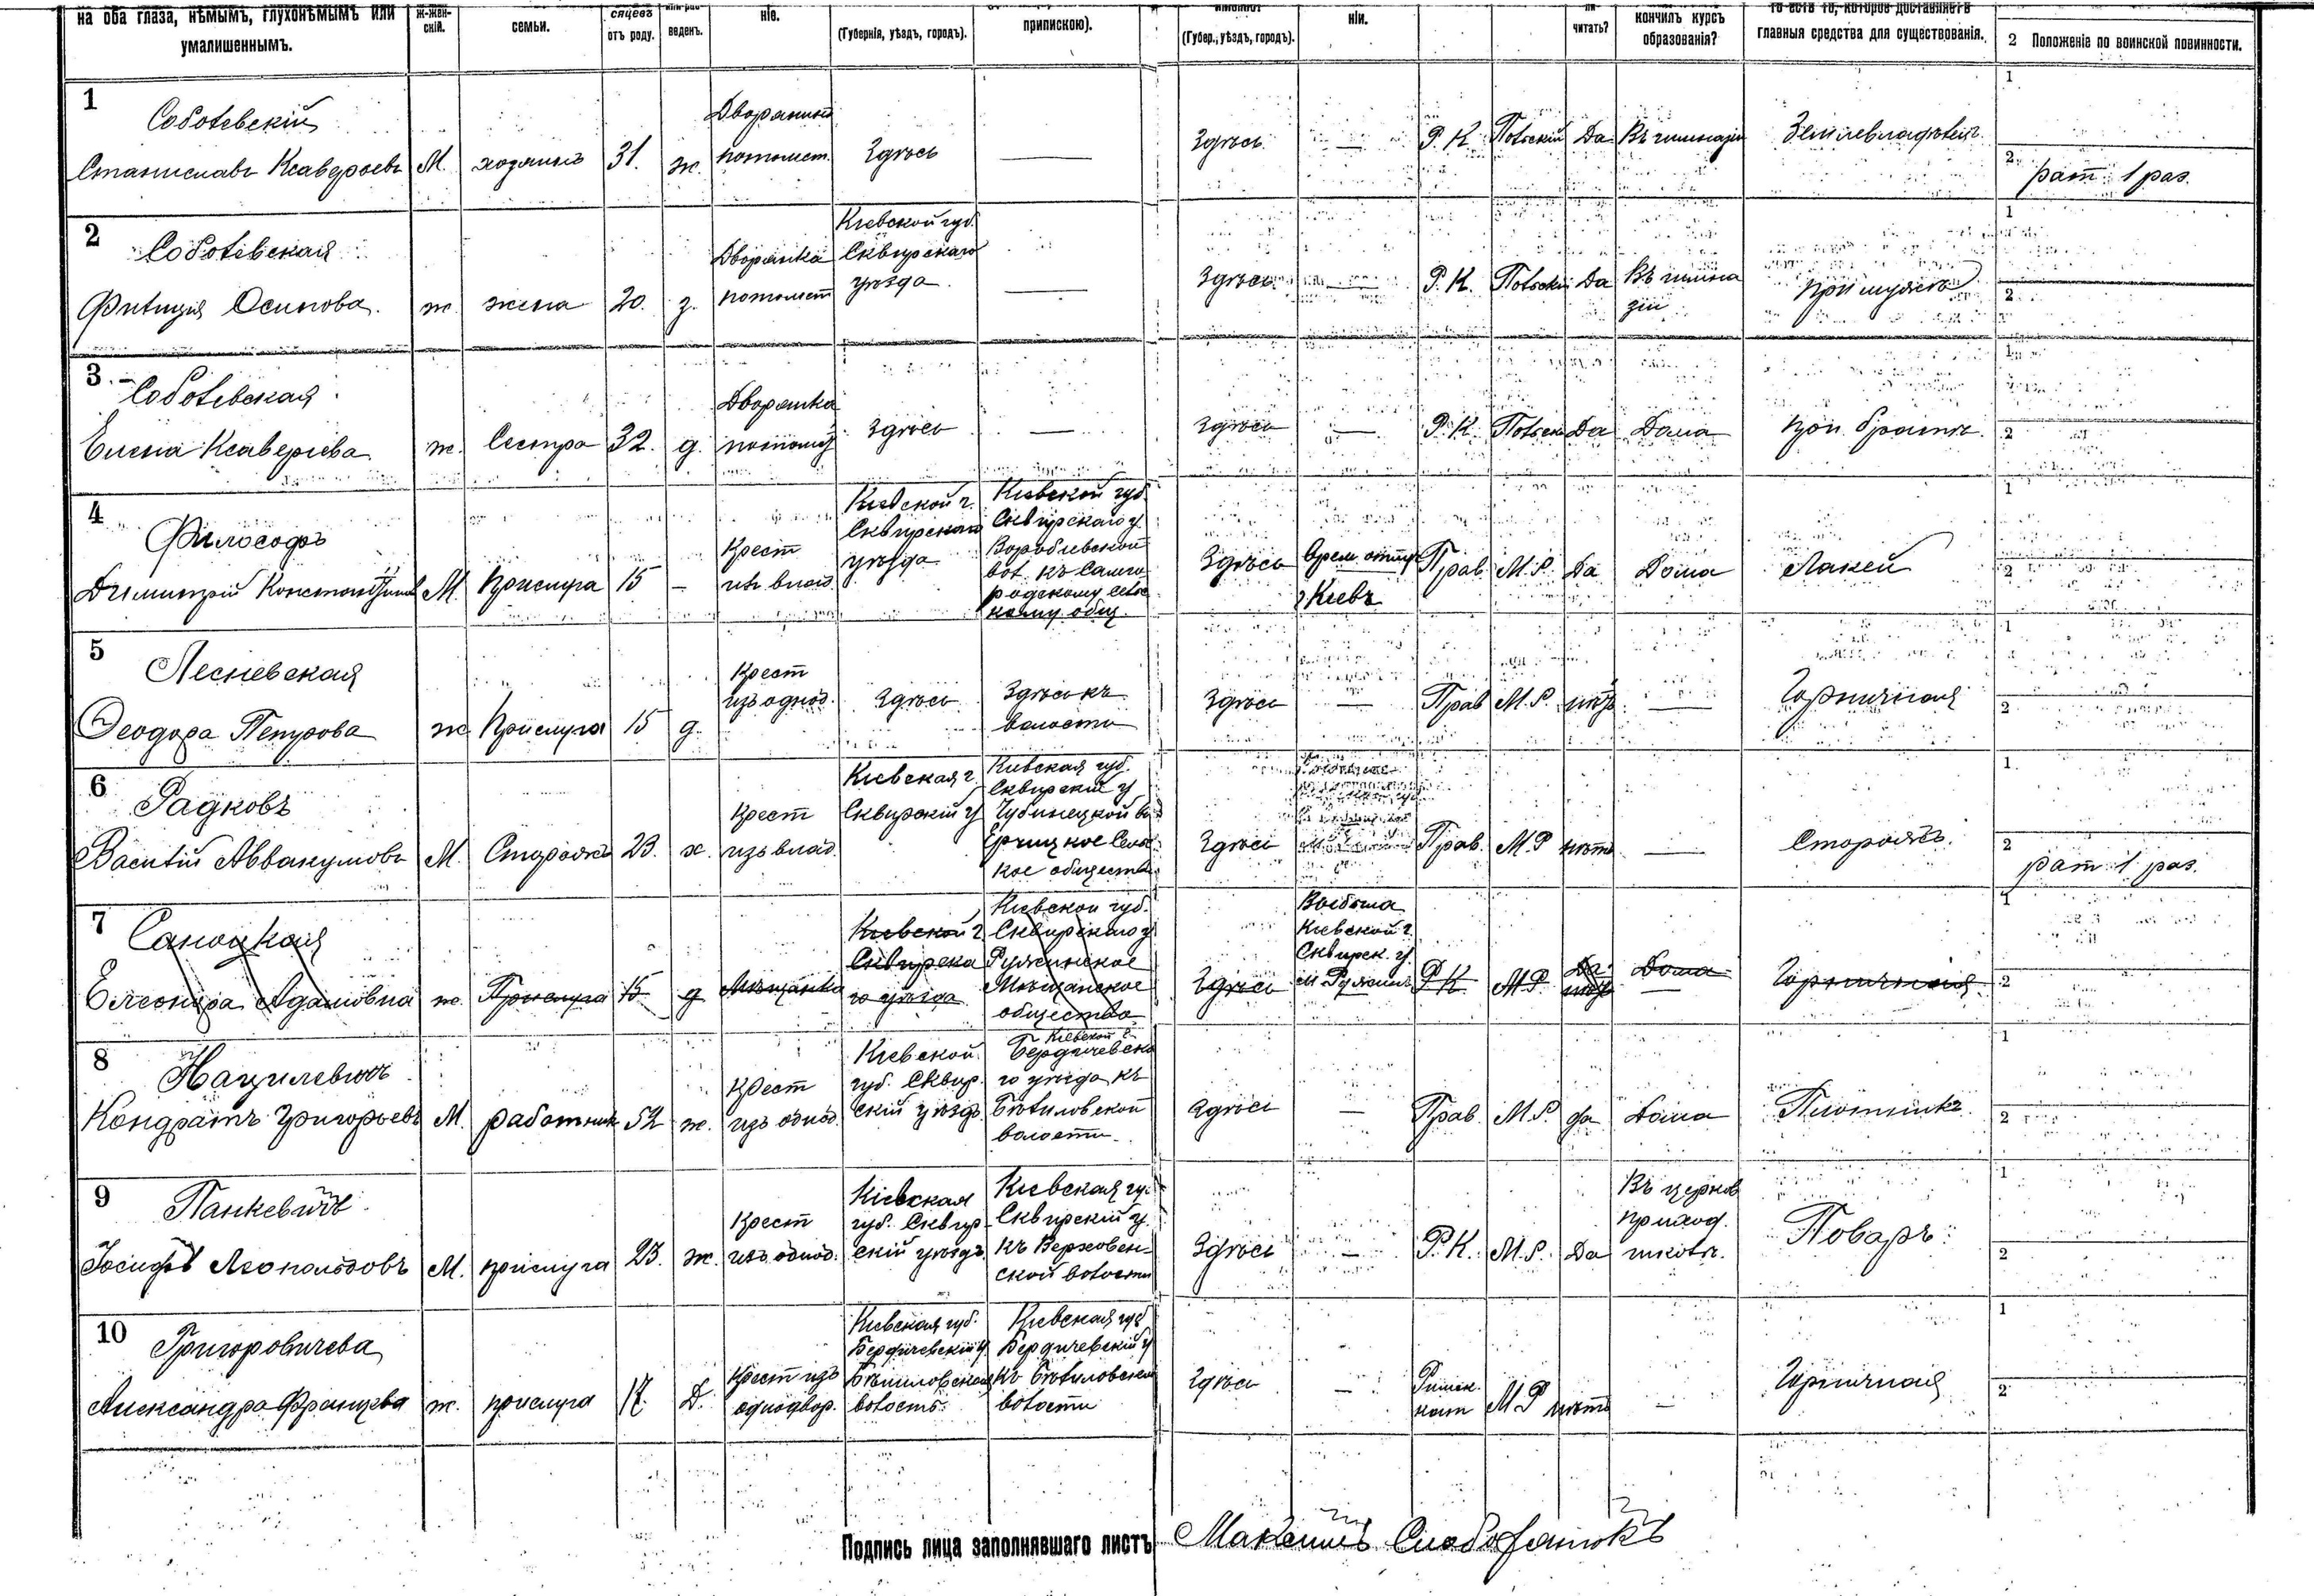 на оба глаза, нѣмымъ, глухонѣмымъ или умалишеннымъ.
ж-жен-скій.
семьи.
отъ роду.
веденъ.
ніе.
(Губернія, уѣздъ, городъ).
припискою).
(Губер., уѣздъ, городъ).
ніи.
читать?
кончилъ курсъ образованія?
то есть то, которое доставляетъ главныя средства для существованія.
2 Положеніе по воинской повинности.
1
Соболевскій
Станиславъ Ксаверіевъ
М. хозяинъ 31. ж.
Дворянинъ потомст.
Здѣсь —
Здѣсь — Р. К. Польскій Да Въ гимназіи
Землевладѣлецъ
1
2
рат. 1 раз.
2
Соболевская
Фелиція Осипова.
ж. жена 20. з.
Дворянка потомст
Кіевской губ.
Сквирскаго
уѣзда
—
Здѣсь — Р. К. Польскій Да Въ гимна
зіи
при мужѣ
1
2
3
Соболевская
Елена Ксаверіева
ж. Сестра 32. д.
Дворянка
потомст
Здѣсь —
Здѣсь — Р. К. Польск Да Дома
при братѣ.
1
2
4
Философъ
Димитрій Константиновъ
М. Прислуга 15 —
Крест
изъ влад.
Кіевской г.
Сквирскаго
уѣзда
Кіевской губ.
Сквирскаго у.
вол. къ
кому общ.
Здѣсь Врем. отпр
г Кіевъ
Прав. М. Р. Да Дома
Лакей
1
2
5
Лесневская
Феодора Петрова
ж. Прислуга 15 д.
Крест
изъ однод.
Здѣсь
Здѣсь къ
волости
Здѣсь — Прав. М. Р. нѣтъ —
Горничная
1
2
6
Радковъ
Василій Аввакумовъ
М. Сторожъ 23. ж.
Крест
изъ влад.
Кіевская г.
Сквирскій у
Кіевская губ.
Сквирскій у
Чубинецкой во
Ерчицкое Сельс
кое общество
Здѣсь
Прав. М. Р нѣтъ —
Сторожъ.
1
2
рат. 1 раз.
7
Саноцкая
Елеонора Адамовна
ж. Прислуга 15 д
Мѣщанка
Кіевской г
Сквирска
го уѣзда
Кіевской губ.
Сквирскаго у
Ружинское
Мѣщанское
общество
Здѣсь
Выбыла
Кіевской г.
Сквирск. у.
м Ружинъ
Р К М Р
Да
нѣтъ
Дома
Горничная
1
2
8
Нацилевичъ
Кондратъ Григорьевъ
М. работникъ 52 ж.
Крест
изъ однод.
Кіевской
губ. Сквир.
скій уѣздъ
Кіевской г.
Бердичевска
го уѣзда къ
Бѣлиловской
волости.
Здѣсь — Прав. М. Р. да дома
Плотникъ.
1
2
9
Панкевичъ
Іосифъ Леопольдовъ
М. прислуга 23. ж.
Крест
изъ однод.
Кіевская
губ. Сквир
скій уѣздъ
Кіевская гу.
Сквирскій у.
къ Верховен-
ской волости
Здѣсь — Р. К. М. Р. Да
Въ церков
приход.
школѣ.
Поваръ
1
2
10
Григоровичева
Александра Францева
ж. прислуга 17. Д.
Крест изъ
однодвор.
Кіевская губ.
Бердичевскій у
Бѣлиловская
волость.
Кіевская губ
Бердичевскій у
къ Бѣлиловской
волости
Здѣсь —
Римск.
кат
М. Р нѣтъ —
Горничная
1
2
Подпись лица заполнявшаго листъ
Максимъ Слободянюкъ